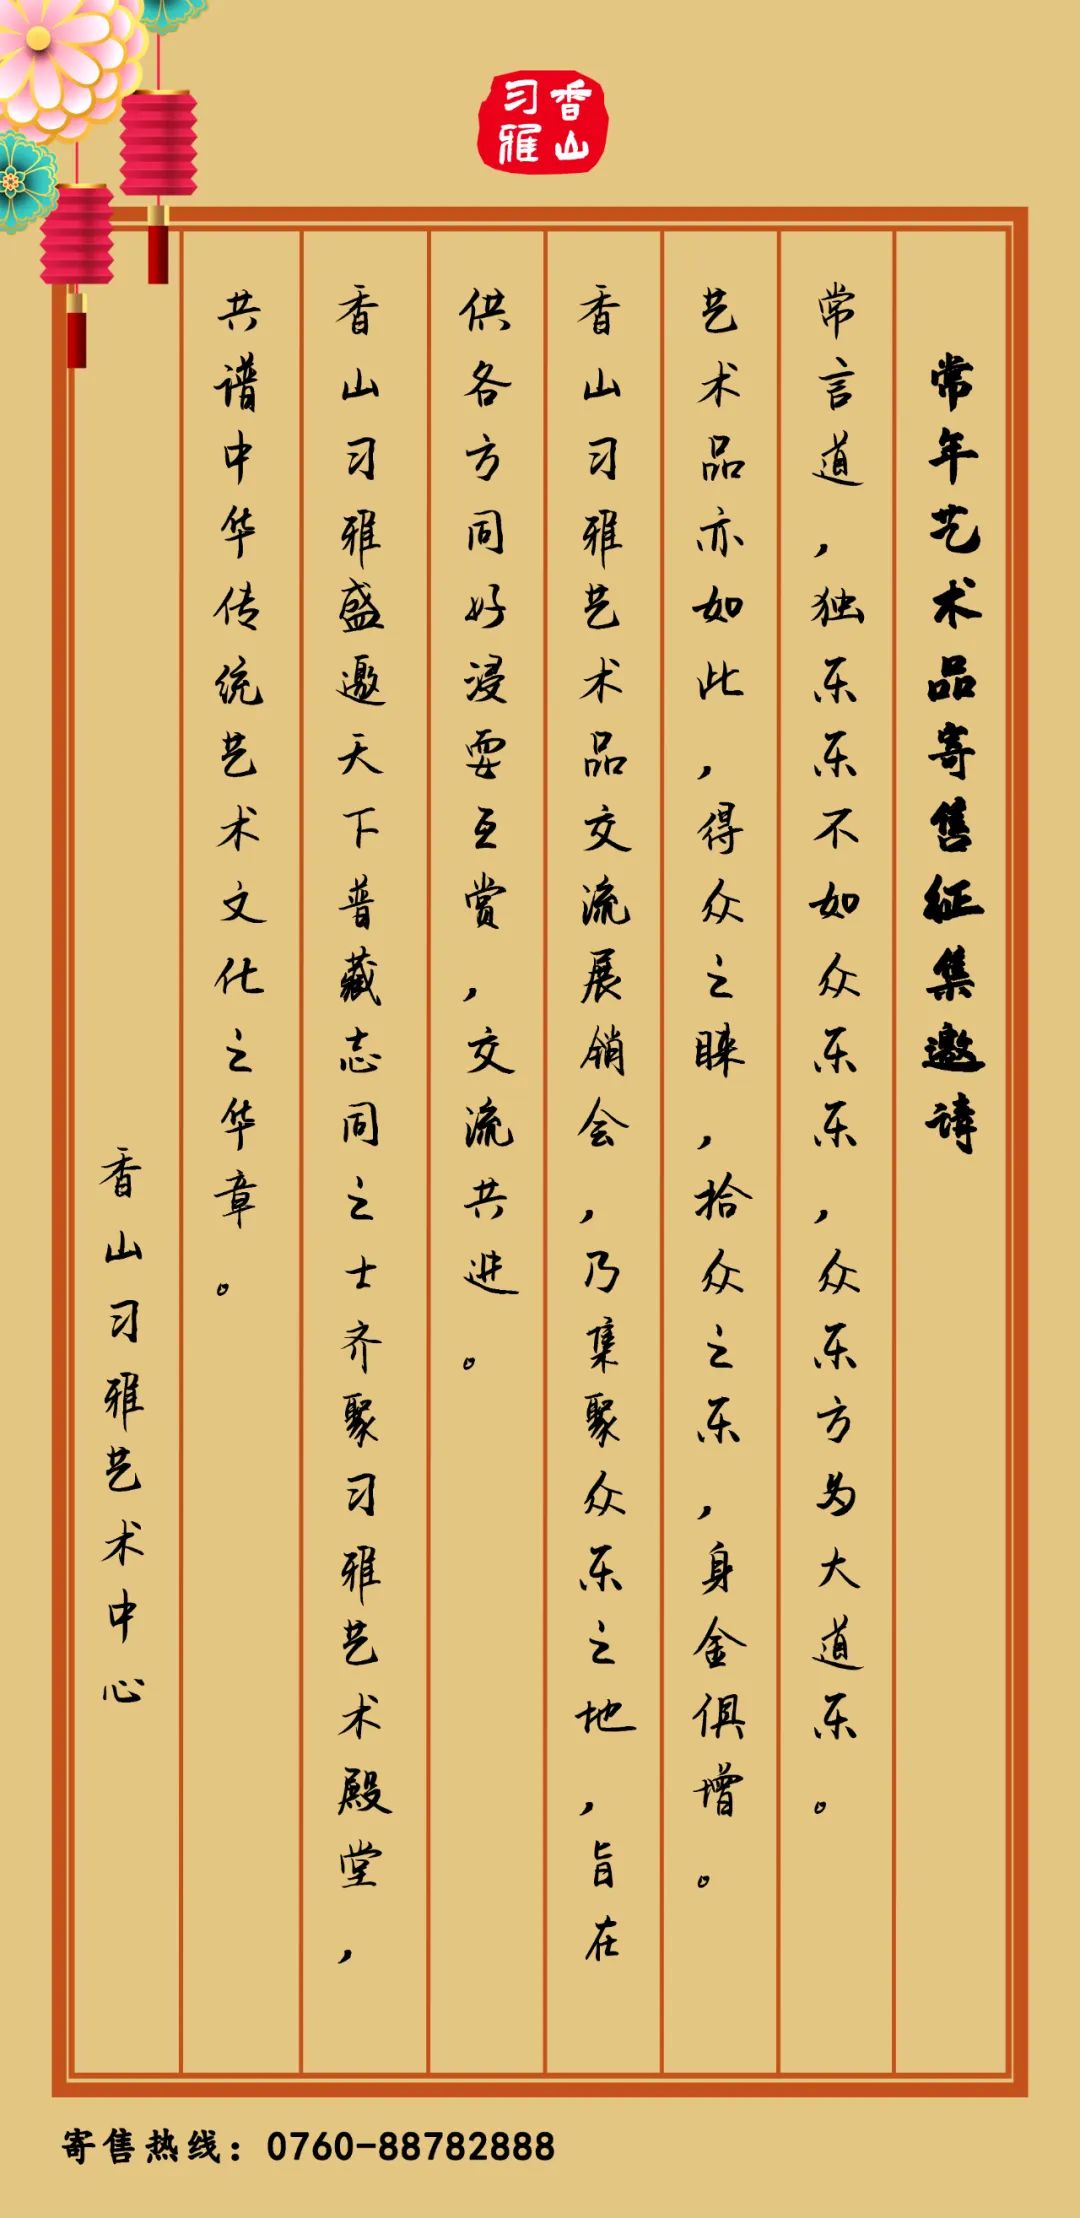 香山
习雅
常年艺术品寄售征集邀请
常言道，独乐乐不如众乐乐，众乐方为大道乐。
艺术品亦如此，得众之睐，拾众之乐，身金俱增。
香山习雅艺术品交流展销会，乃集聚众乐之地，旨在
供各方同好浸耍互赏，交流共进。
香山习雅盛邀天下普藏志同之士齐聚习雅艺术殿堂，
共谱中华传统艺术文化之华章。
香山习雅艺术中心
寄售热线：0760-88782888